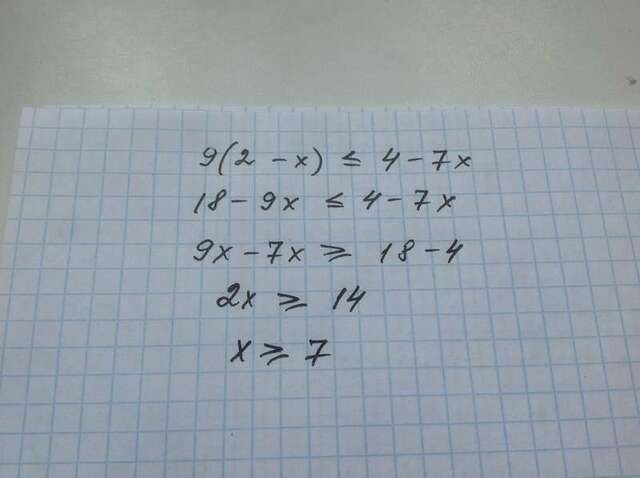 9(2 - x) ≤ 4 - 7x
18 - 9x ≤ 4 - 7x
9x - 7x ⩾ 18 - 4
2x ⩾ 14
x ⩾ 7